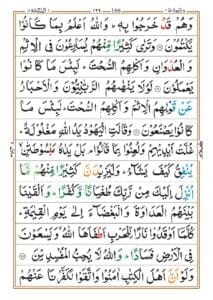 وَهُمْ قَدْ خَرَجُوْا بِهٖ ؕ وَاللّٰهُ اَعْلَمُ بِمَا كَانُوْا
يَكْتُمُوْنَ ۝ وَتَرٰى كَثِيْرًا مِّنْهُمْ يُسَارِعُوْنَ فِى الْاِثْمِ
وَالْعُدْوَانِ وَاَكْلِهِمُ السُّحْتَ ؕ لَبِئْسَ مَا كَانُوْا
يَعْمَلُوْنَ ۝ لَوْلَا يَنْهٰىهُمُ الرَّبّٰنِيُّوْنَ وَالْاَحْبَارُ
عَنْ قَوْلِهِمُ الْاِثْمَ وَاَكْلِهِمُ السُّحْتَ ؕ لَبِئْسَ مَا
كَانُوْا يَصْنَعُوْنَ ۝ وَقَالَتِ الْيَهُوْدُ يَدُ اللّٰهِ مَغْلُوْلَةٌ ؕ
غُلَّتْ اَيْدِيْهِمْ وَلُعِنُوْا بِمَا قَالُوْا ۘ بَلْ يَدٰهُ مَبْسُوْطَتٰنِ ۙ
يُنْفِقُ كَيْفَ يَشَآءُ ؕ وَلَيَزِيْدَنَّ كَثِيْرًا مِّنْهُمْ مَّاۤ
اُنْزِلَ اِلَيْكَ مِنْ رَّبِّكَ طُغْيَانًا وَّكُفْرًا ؕ وَاَلْقَيْنَا
بَيْنَهُمُ الْعَدَاوَةَ وَالْبَغْضَآءَ اِلٰى يَوْمِ الْقِيٰمَةِ ؕ
كُلَّمَاۤ اَوْقَدُوْا نَارًا لِّلْحَرْبِ اَطْفَاَهَا اللّٰهُ ۙ وَيَسْعَوْنَ
فِى الْاَرْضِ فَسَادًا ؕ وَاللّٰهُ لَا يُحِبُّ الْمُفْسِدِيْنَ ۝
وَلَوْ اَنَّ اَهْلَ الْكِتٰبِ اٰمَنُوْا وَاتَّقَوْا لَكَفَّرْنَا عَنْهُمْ